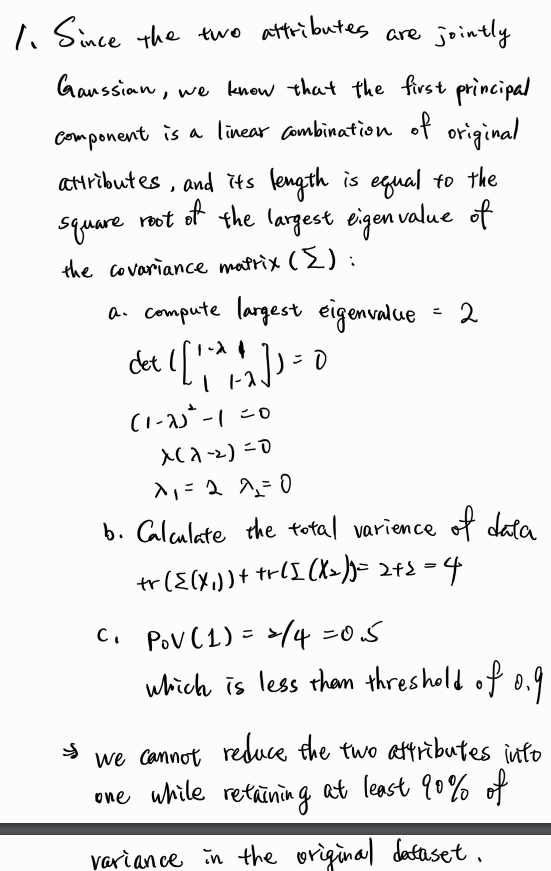 1. Since the two attributes are jointly
Gaussian, we know that the first principal
component is a linear combination of original
attributes, and its length is equal to the
square root of the largest eigenvalue of
the covariance matrix (Σ) :
a. compute largest eigenvalue = 2
det ([1-λ 1
1 1-λ]) = 0
(1-λ)² -1 = 0
λ(λ-2) = 0
λ₁ = 2 λ₂ = 0
b. Calculate the total varience of data
tr(Σ(X₁)) + tr(Σ(X₂)) = 2+2 = 4
c. PoV(1) = 2/4 = 0.5
which is less than threshold of 0.9
⇒ we cannot reduce the two attributes into
one while retaining at least 90% of
variance in the original dataset.